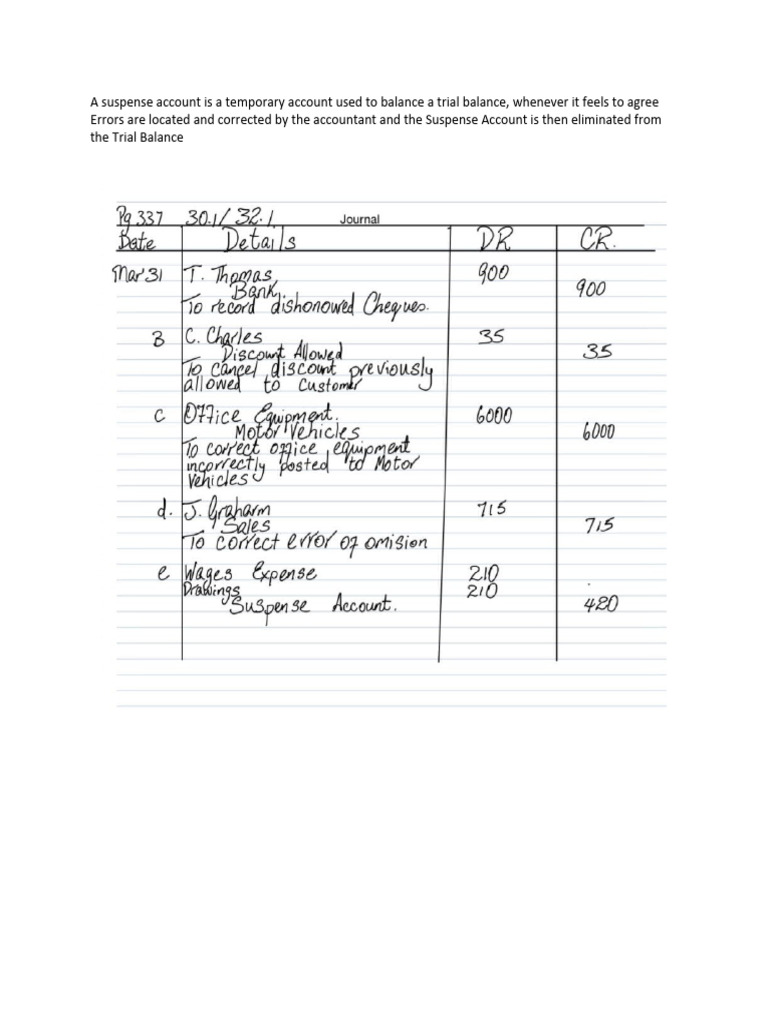 A suspense account is a temporary account used to balance a trial balance, whenever it feels to agree
Errors are located and corrected by the accountant and the Suspense Account is then eliminated from
the Trial Balance
Pg 337 30.1/ 32.1 Journal
Date Details DR CR.
Mar 31 T. Thomas 900
Bank. 900
To record dishonowed Cheques.
B C. Charles 35
Discount Allowed 35
To cancel discount previously
allowed to Customer
C Office Equipment. 6000
Motor Vehicles 6000
To correct office equipment
incorrectly posted to Motor
Vehicles
d. J. Graharm 715
Sales 715
To correct error of omision
e Wages Expense 210
Drawings 210
Suspense Account. 420